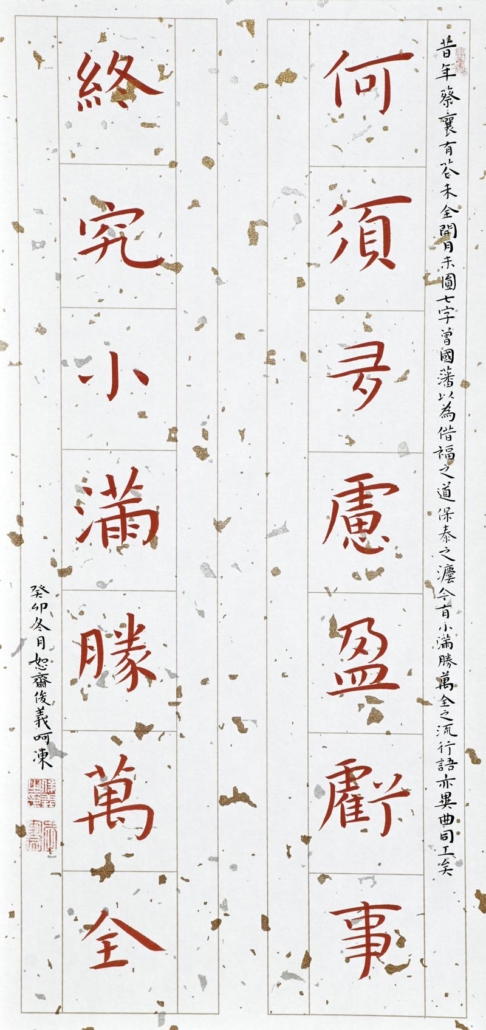 昔年蔡襄有花未全開月未圓七字曾國藩以為惜福之道保泰之灋今有小滿勝萬全之流行語亦異曲同工矣
何須多慮盈虧事
終究小滿勝萬全
癸卯冬月恕齋俊義呵凍